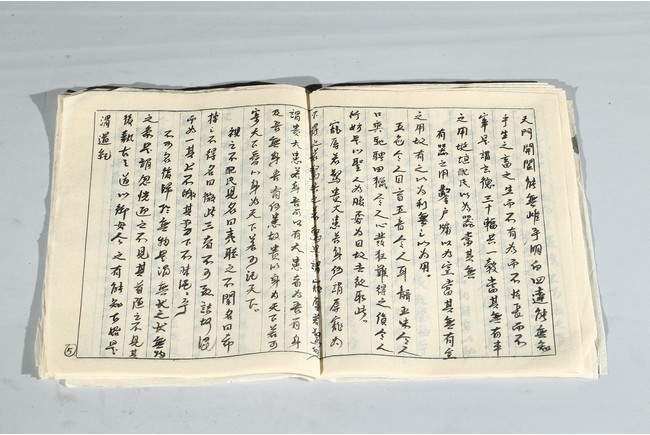 天門開闔能無雌乎明白四達能無知
乎生之畜之生而不有為而不恃長而不
宰是謂玄德三十輻共一轂當其無有車
之用埏埴以為器當其無
有器之用鑿戶牖以為室當其無有室
之用故有之以為利無之以為用。
五色令人目盲五音令人耳聾五味令人
口爽馳騁田獵令人心發狂難得之貨令人
行妨是以聖人為腹不為目故去彼取此。
寵辱若驚貴大患若身何謂寵辱寵為
下得之若驚失之若驚是謂寵辱若驚何
謂貴大患若身吾所以有大患者為吾有身
及吾無身吾有何患故貴以身為天下若可
寄天下愛以身為天下若可託天下。
視之不見名曰夷聽之不聞名曰希
搏之不得名曰微此三者不可致詰故混
而為一其上不皦其下不昧繩
不可名復歸於無物是謂無狀之狀無物
之象是謂忽恍迎之不見其首隨之不見其
後執古之道以御今之有能知古始是
謂道紀
5